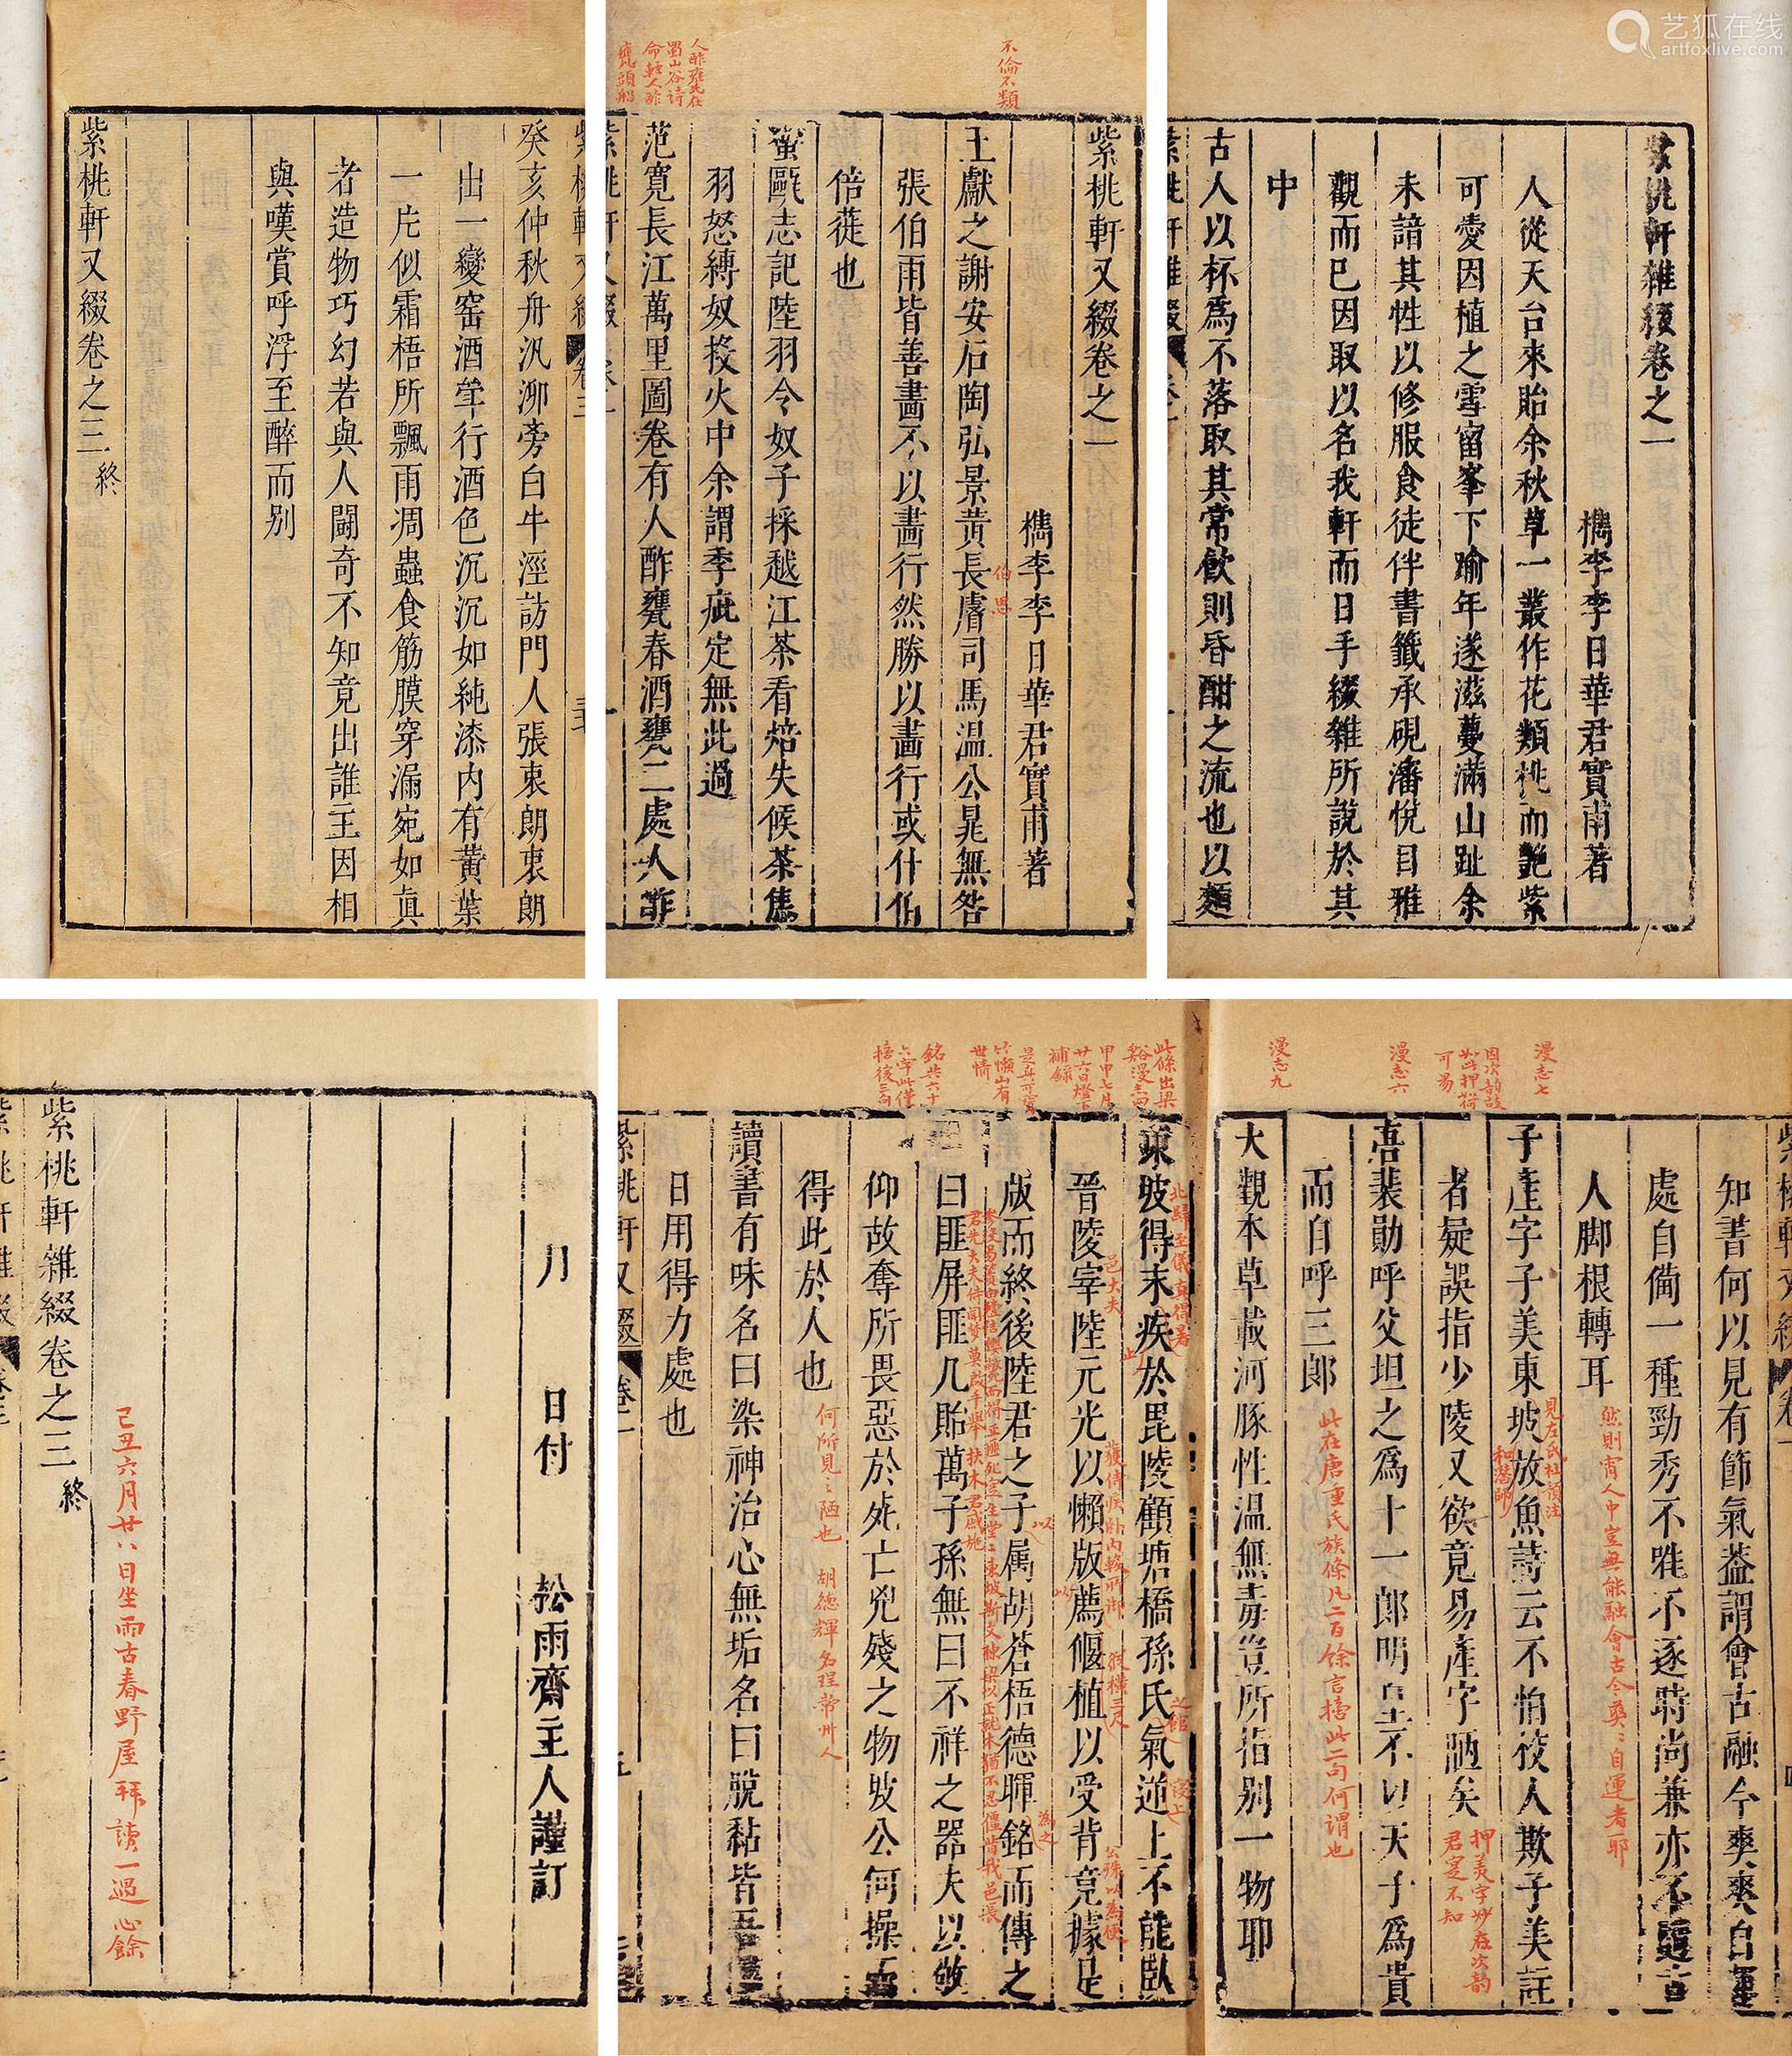 艺狐在线
artfoxlive.com
紫桃軒雜綴卷之一
檇李李日華君實甫著
人從天台來貽余秋草一叢作花類桃而艷紫
可愛因植之雪窗峯下踰年遂滋蔓滿山趾余
未諳其性以修服食徒伴書籤承硯瀋悅目雅
觀而已因取以名我軒而日手綴雜所說於其
中
古人以杯爲不落取其常飲則昏酣之流也以麵
不倫不類
紫桃軒又綴卷之一
檇李李日華君實甫著
伯思
王獻之謝安石陶弘景黄長睿司馬温公晁無咎
張伯雨皆善畫不以畫行然勝以畫行或什伯
倍蓰也
蠻甌志記陸羽令奴子採越江茶看焙失候茶焦
羽怒縛奴投火中余謂季疵定無此過
范寬長江萬里圖卷有人酢甕春酒甕二處人酢
人酢甕在
蜀山谷詩
命輕人酢
甕頭船
紫桃軒又綴
癸亥仲秋舟汎泖旁白牛涇訪門人張東朗東朗
出一變窑酒斝行酒色沉沉如純漆内有黄葉
一片似霜梧所飄雨凋蟲食筋膜穿漏宛如真
者造物巧幻若與人闘奇不知竟出誰主因相
與嘆賞呼浮至醉而别
紫桃軒又綴卷之三終
知書何以見有節氣葢謂會古融今爽爽自運
處自備一種勁秀不唯不逐時尚兼亦不
人脚根轉耳
然則宵人中豈無能融會古今奭〻自運者耶
漫志七
子產字子美東坡放魚詩云不怕校人欺子美註
見左氏杜預注
和潛師
因次韵故
如此押荷
可易
者疑誤指少陵又欲竟易產字陋矣
押美字妙在次韵
君寔不知
漫志六
喜裴勛呼父坦之爲十一郎明皇不以天子爲貴
而自呼三郎
此在唐重氏族條凡二百餘言撦此二句何謂也
漫志九
大觀本草載河豚性温無毒豈所指别一物耶
此條出梁
谿漫志四
甲申七月
廿六日燈下
補録
東坡得末疾於毘陵顧塘橋孫氏氣逆上不能臥
北歸至儀真得暑
晉陵宰陸元光以懶版薦偃植以受背竟據是
邑大夫
獲侍疾卧内輟所御
縱横三尺
版而終後陸君之子属胡蒼梧德暉銘而傳之
曰匪屏匪几貽萬子孫無曰不祥之器夫以敚
仰故奪所畏惡於死亡兇殘之物坡公何操而
得此於人也
何所見〻陋也
胡德輝名珵常州人
銘共六十
六字此僅
撦後三句
讀書有味名曰染神治心無垢名曰脱黏皆吾
日用得力處也
月
日付
松雨齋主人謹訂
己丑六月廿八日坐雨古春野屋拜讀一過心餘
紫桃軒雜綴卷之三終